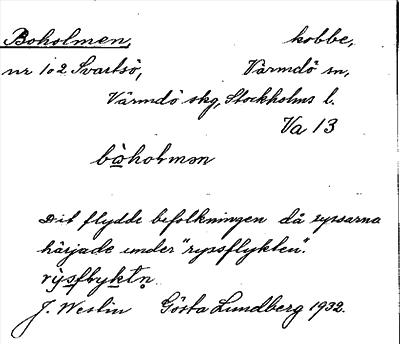 Boholmen, kobbe,
nr 1o2 Svartsö, Värmdö sn,
Värmdö skg, Stockholms l.
Va 13
bòholmən
Dit flydde befolkningen då ryssarna
härjade under "ryssflykten".
rỳsflyktn̥
J. Westin Gösta Lundberg 1932.